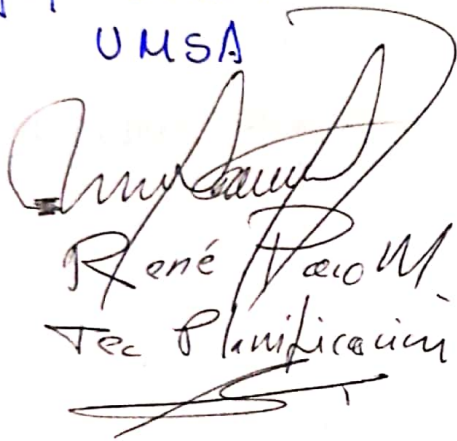 UMSA
René Paco M.
Tec Planificación